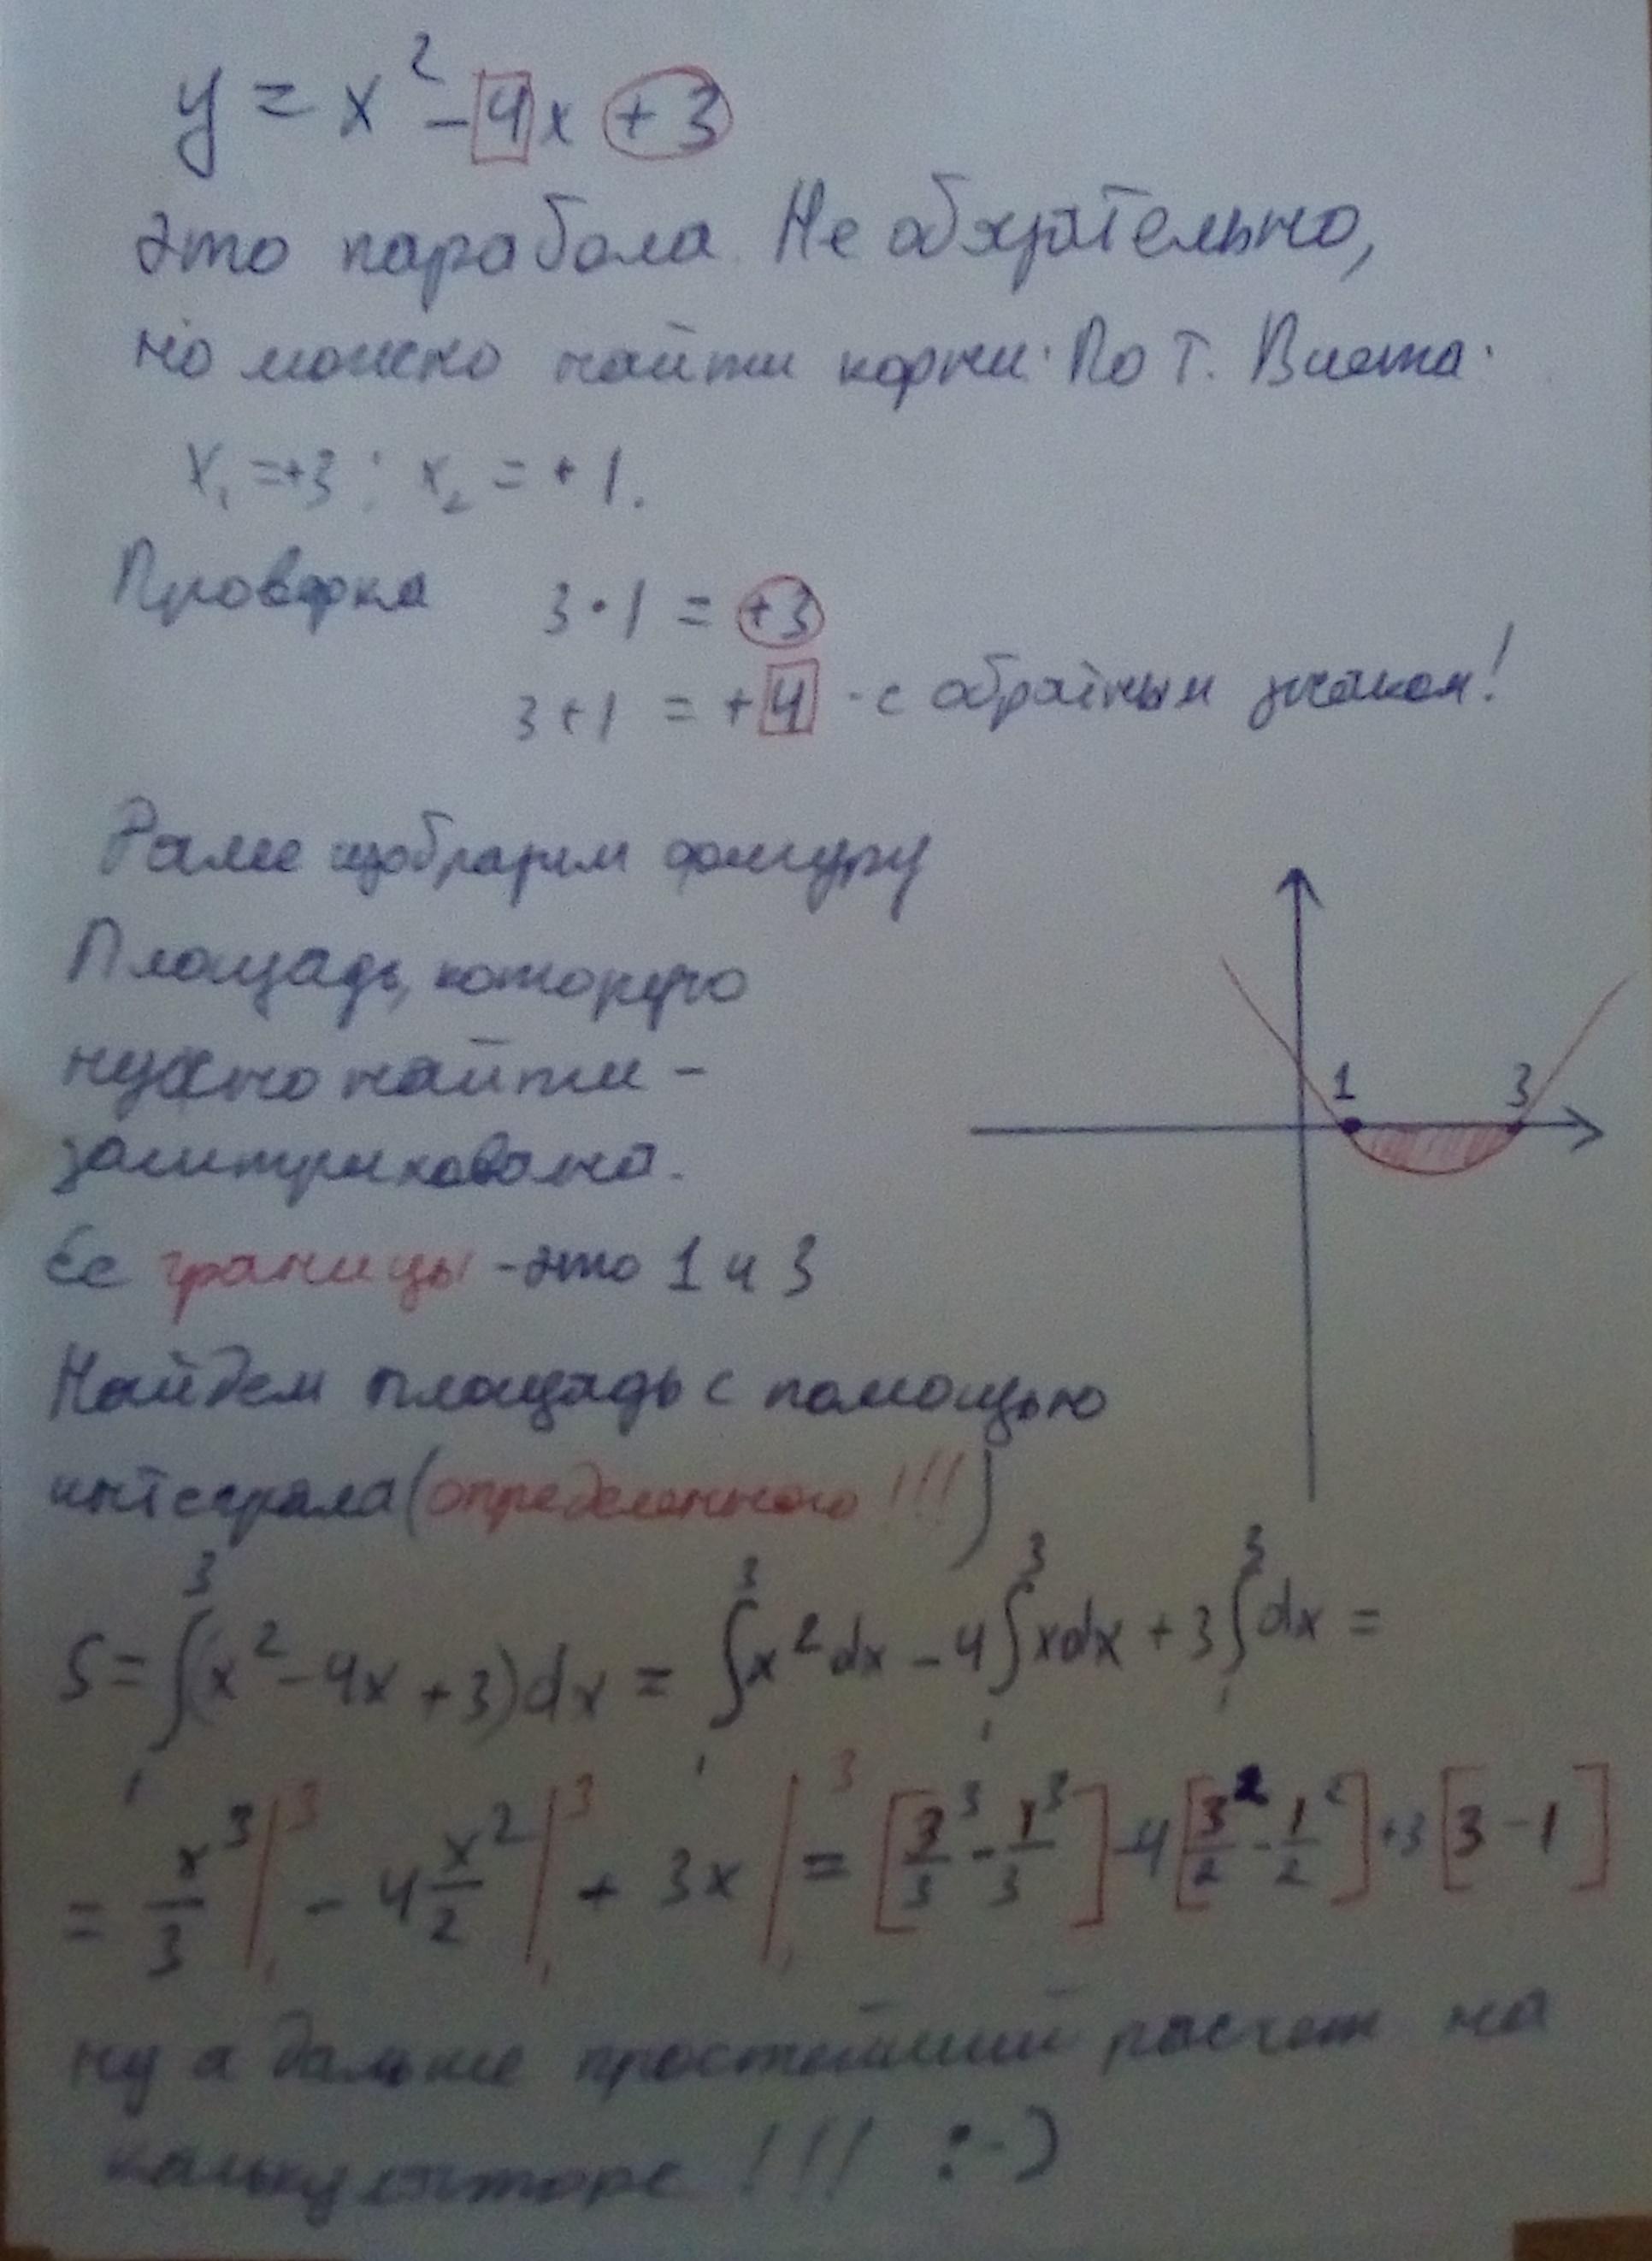 y = x² - 4x + 3
это парабола. Не обязательно,
но можно найти корни. По т. Виета.
x₁ = +3 ; x₂ = + 1.
Проверка 3 · 1 = +3
3 + 1 = + 4 - с обратным знаком!
Далее изобразим фигуру
Площадь, которую
нужно найти -
заштрихована.
1 3
Ее границы - это 1 и 3
Найдем площадь с помощью
интеграла (определенного !!!)
S = ∫₁³ (x² - 4x + 3) dx = ∫₁³ x² dx - 4 ∫₁³ x dx + 3 ∫₁³ dx =
= x³/3 |₁³ - 4 x²/2 |₁³ + 3x |₁³ = [3³/3 - 1³/3] - 4 [3²/2 - 1²/2] + 3 [3 - 1]
ну а дальше простейший расчет на
калькуляторе !!! :-)